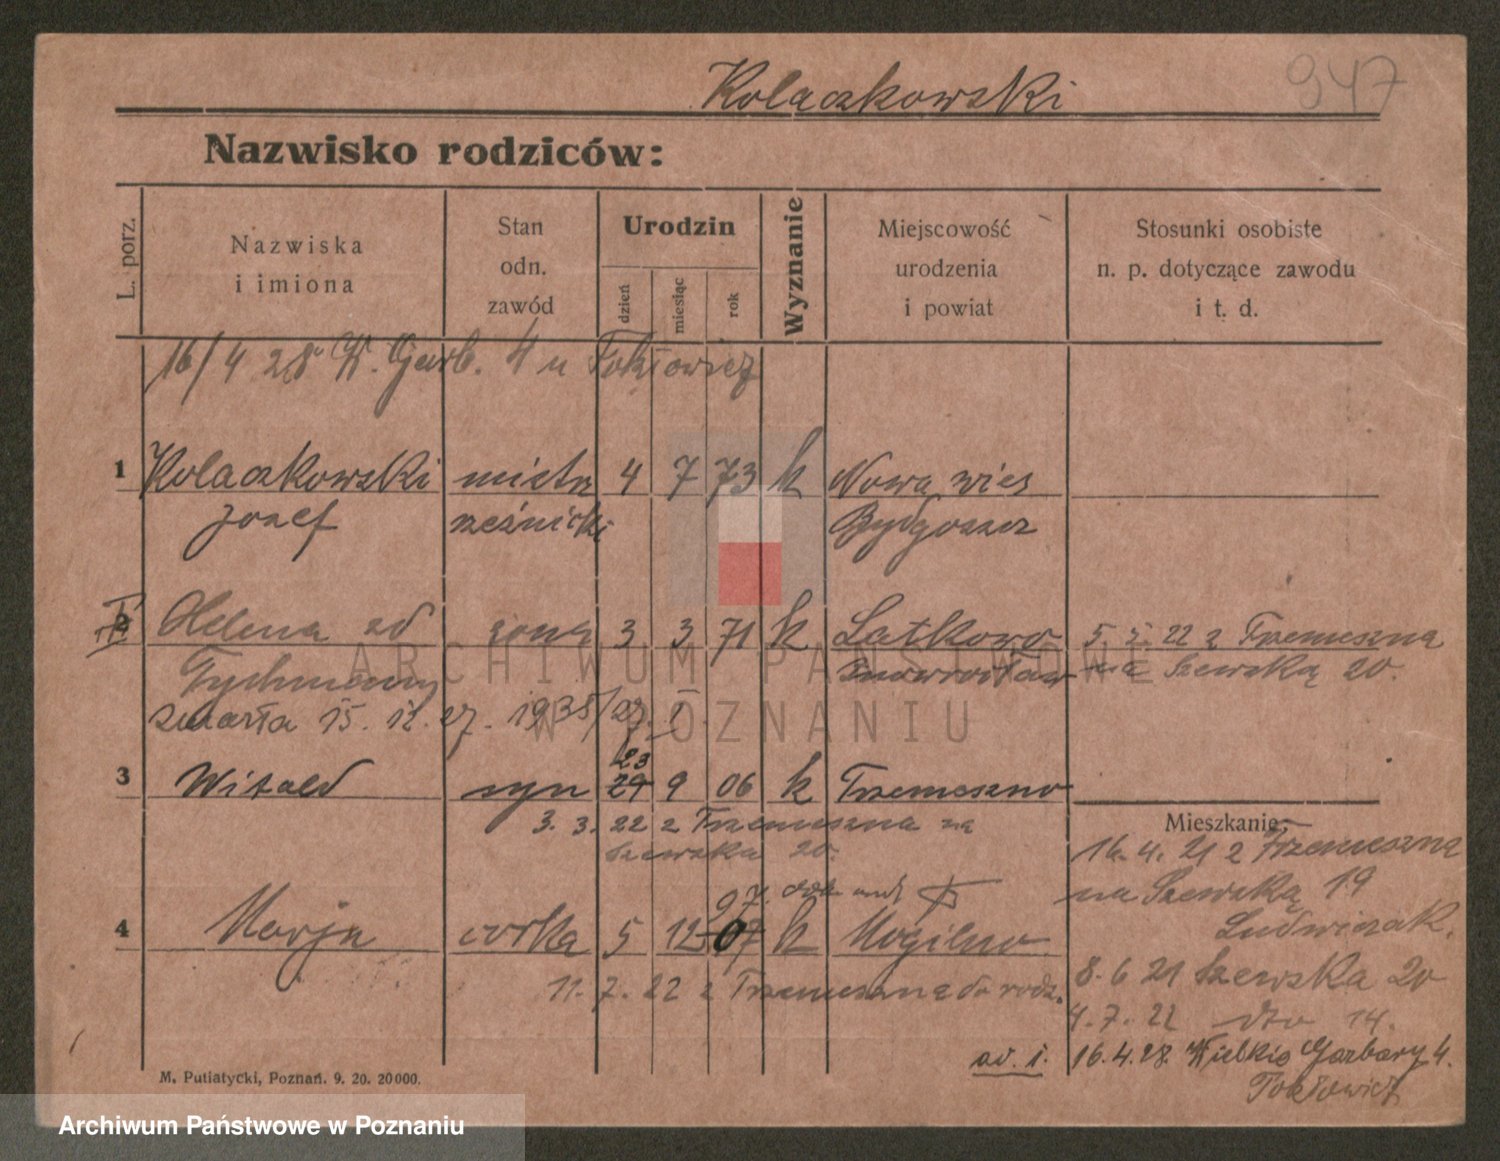 Kolaczkowski 947
Nazwisko rodziców:
L. porz.
Nazwiska
i imiona
Stan
odn.
zawód
Urodzin
dzień
miesiąc
rok
Wyznanie
Miejscowość
urodzenia
i powiat
Stosunki osobiste
n. p. dotyczące zawodu
i t. d.
16/4 28 W. Garb. 4 u Tokłowicz
1 Kolaczkowski mistrz 4 7 73 k Nowa wieś
Józef rzeźnicki Bydgoszcz
2 Helena zd żona 3 3 71 k Latkowo 5. 5. 22 z Trzemeszna
Inowrocław na Szewską 20.
zmarła 15. 12. 27. 1938/27. I.
23
3 Witold syn 24 9 06 k Trzemeszno
3. 3. 22 z Trzemeszna na
Szewska 20.
Mieszkanie
16. 4. 21 z Trzemeszna
na Szewską 19
Ludwiczak.
97.
4 Marja córka 5 12 07 k Mogilno
11. 7. 22 z Trzemeszna do rodz.
8. 6 21 Szewska 20
4. 7. 22 dto 14.
ad. 1. 16. 4. 28. Wielkie Garbary 4.
Tokłowicz
M. Putiatycki, Poznań. 9. 20. 20000.
ARCHIWUM PAŃSTWOWE
W POZNANIU
Archiwum Państwowe w Poznaniu